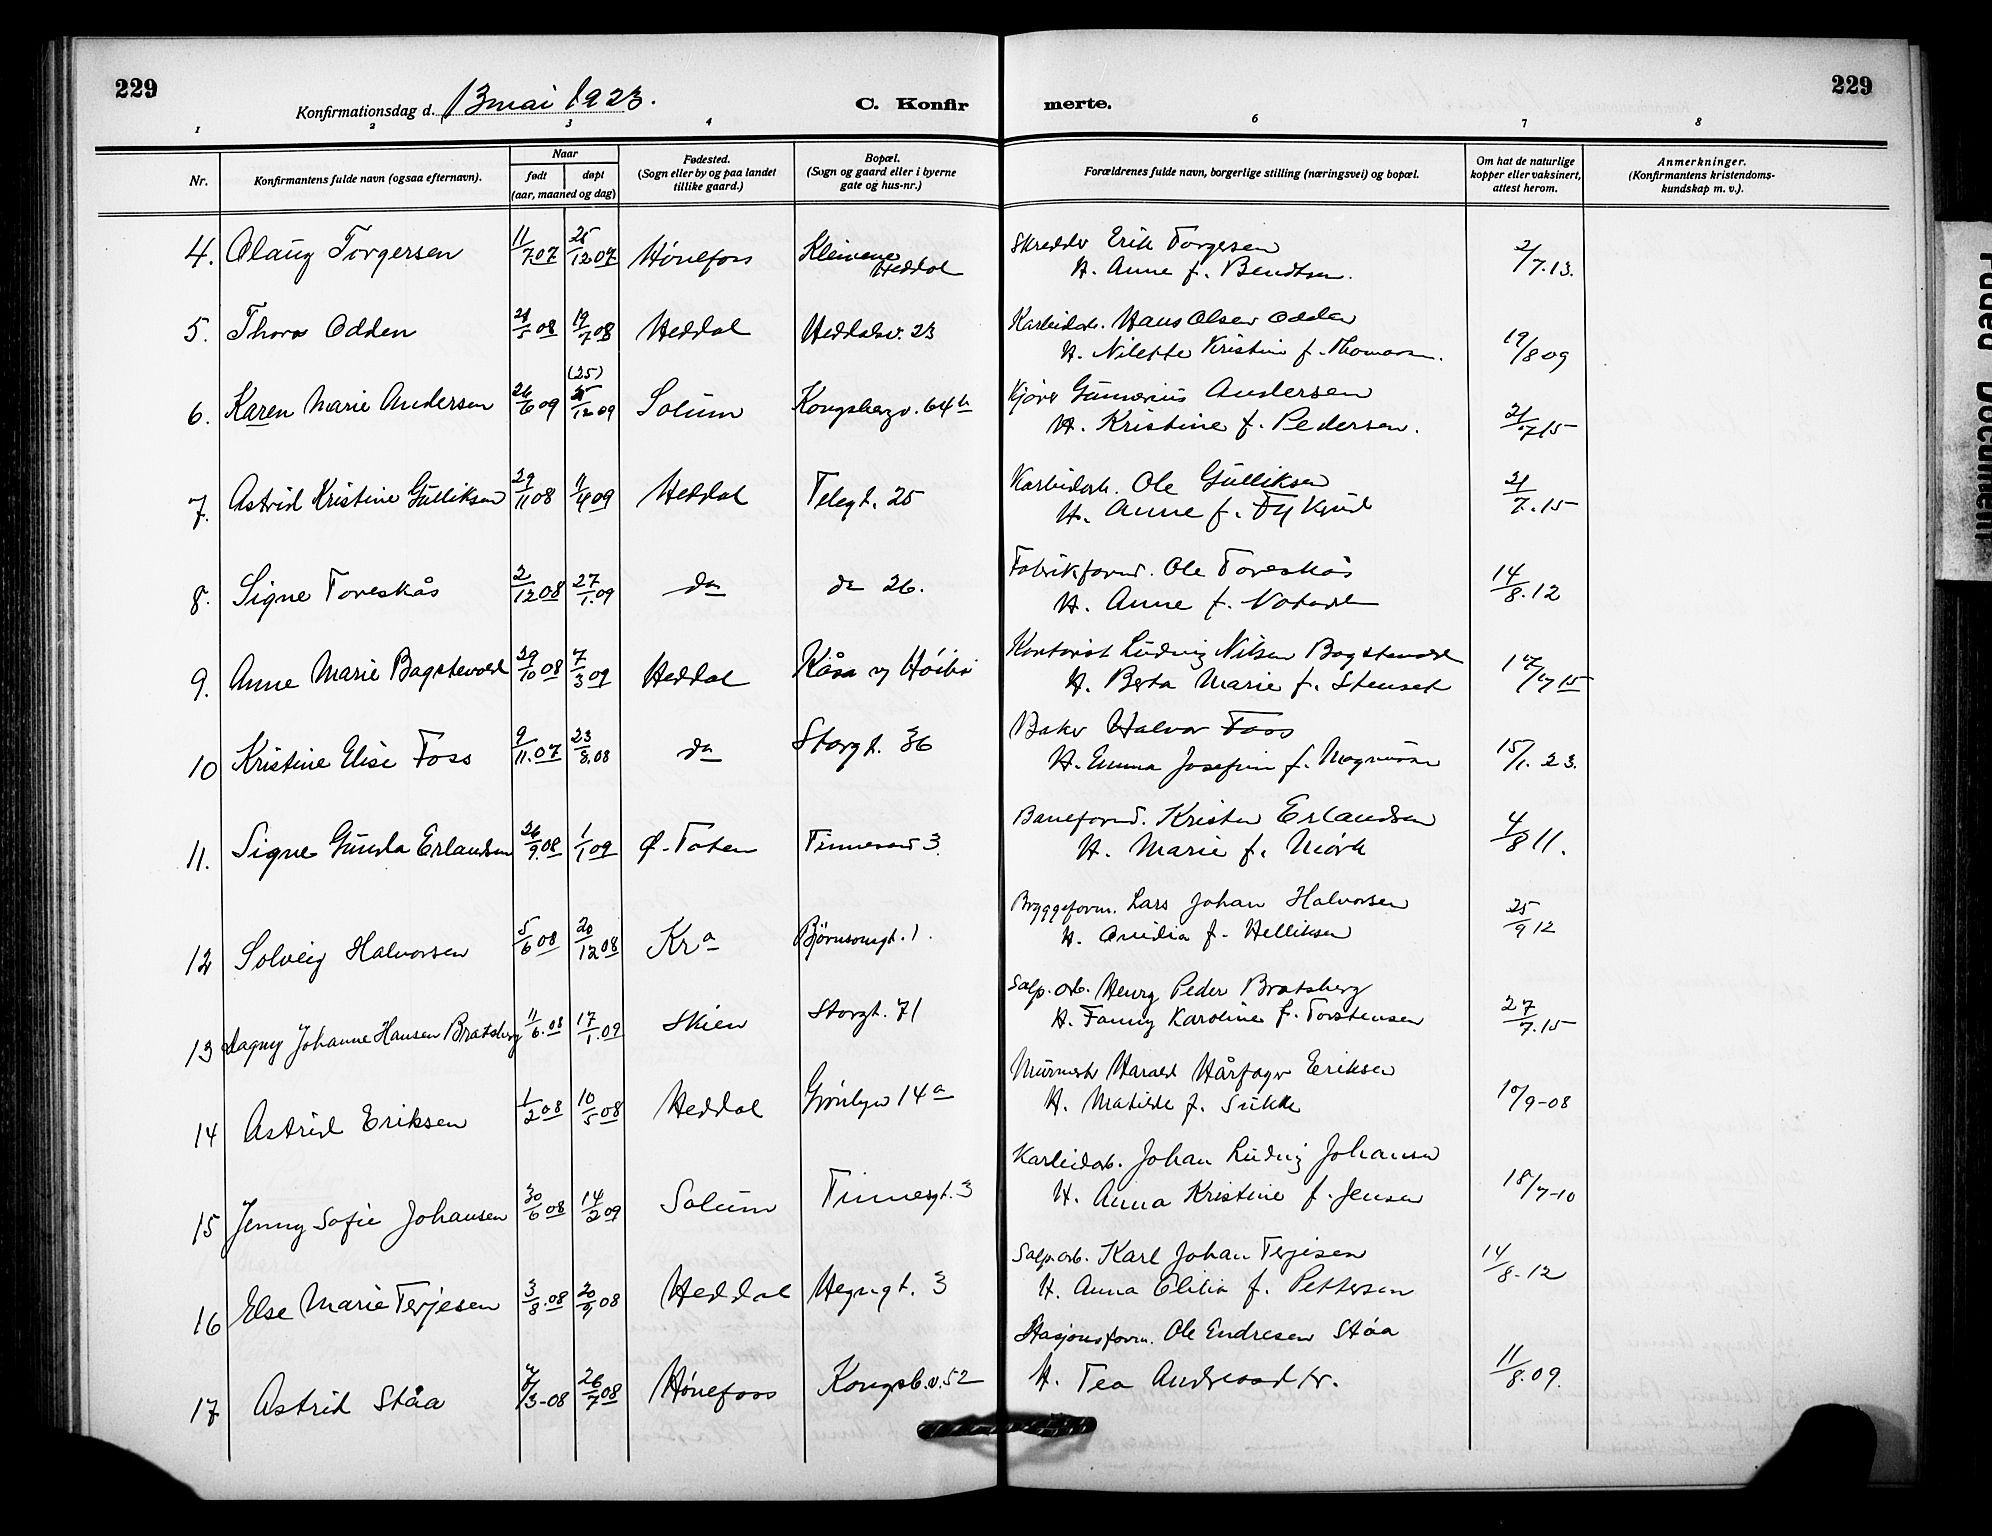 229
Konfirmationsdag d. 13 mai 1923.
C. Konfir
merte.
229
1 2 3 4 6 7 8
Nr.
Konfirmantens fulde navn (ogsaa efternavn).
Naar
født
døpt
(aar, maaned og dag)
Fødested.
(Sogn eller by og paa landet
tillike gaard.)
Bopæl.
(Sogn og gaard eller i byerne
gate og hus-nr.)
Forældrenes fulde navn, borgerlige stilling (næringsvei) og bopæl.
Om hat de naturlige
kopper eller vaksinert,
attest herom.
Anmerkninger.
(Konfirmantens kristendoms-
kundskap m. v.).
4. Olaug Torgersen 11/7 07 25/12 07 Hønefoss Kleivene Heddal Skredder Erik Torgesen 2/7.13.
H. Anne f. Bendtsen.
5. Thora Odden /5 08 19/7 08 Heddal Heddalsv. 23 Karbidarb. Hans Olsen Odden 19/8 09
H. Nilette Kristine f. Thomasen.
6. Karen Marie Andersen 26/6 09 (25) 25/12 09 Solum Kongsbergv. 64 b Kjører Gunnerius Andersen 21/7 15
H. Kristine f. Pedersen.
7. Astrid Kristine Gulliksen 29/11 08 /4 09 Heddal Telegt. 25 Karbidarb. Ole Gulliksen 21/7.15
H. Anne f. Tykjud
8. Signe Toreskås 2/12 08 27/1.09 do do 26. Fabrikform. Ole Toreskås 14/8.12
H. Anne f.
9. Anne Marie Bagstevold 29/10 08 7/3 09 Heddal Kåsa v/ Høibø Kontorist Ludvig Nilsen Bagstevold 17/7 15
H. Berta Marie f. Stenset
10 Kristine Elise Foss 9/11.07 23/8.08 do Storgt. 36 Baker Halvor Foss 15/1. 23.
H. Emma Josefine f. Magnussen
11. Signe Gunda Erlandsen 26/9.08 1/1 09 Ø. Toten Tinnesand 3. Baneform. Kristen Erlandsen 4/8 11.
H. Marie f. Mørk
12 Solveig Halvorsen 5/6 08 20/12 08 Kra Bjørnsonsgt. 1. Byggeform. Lars Johan Halvorsen 25/9 12
H. f. Helliksen
13 Dagny Johanne Hansen Bratsberg 11/6.08 17/1.09 Skien Storgt. 71 Salp. arb. Henry Peder Bratsberg 27/7.15
H. Fanny Karoline f. Torstensen
14 Astrid Eriksen 1/2 08 10/5 08 Heddal Grønbyv 14 a Murmest Harald Hårfager Eriksen 10/9-08
H. Matilde f. Sukke
15 Jenny Sofie Johansen 30/6 08 14/2 09 Solum Tinnesgt. 3 Karbidarb. Johan Ludvig Johansen 18/7-10
H. Anna Kristine f. Jensen
16 Else Marie Terjesen 3/8.08 20/9 08 Heddal Hegnagt. 3 Salp. arb. Karl Johan Terjesen 14/8-12
H. Anna Elilia f. Pettersen
17 Astrid Ståa /3-08 26/7 08 Hønefoss Kongsb.v. 52 Stasjonsform. Ole Endresen Ståa 11/8.09.
H. Tea
Faded Document